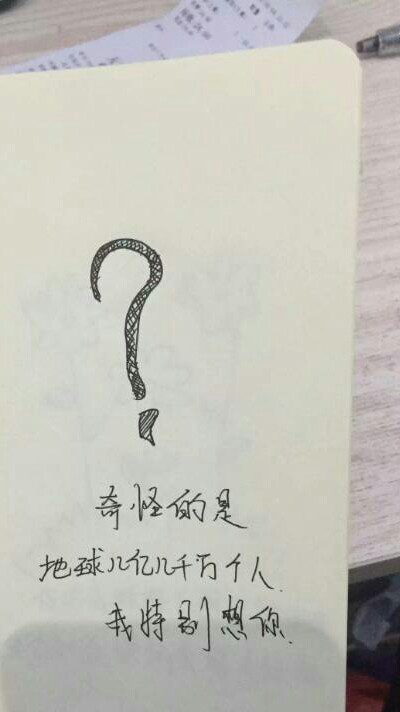 ?
奇怪的是
地球几亿几千万个人.
我特别想你.